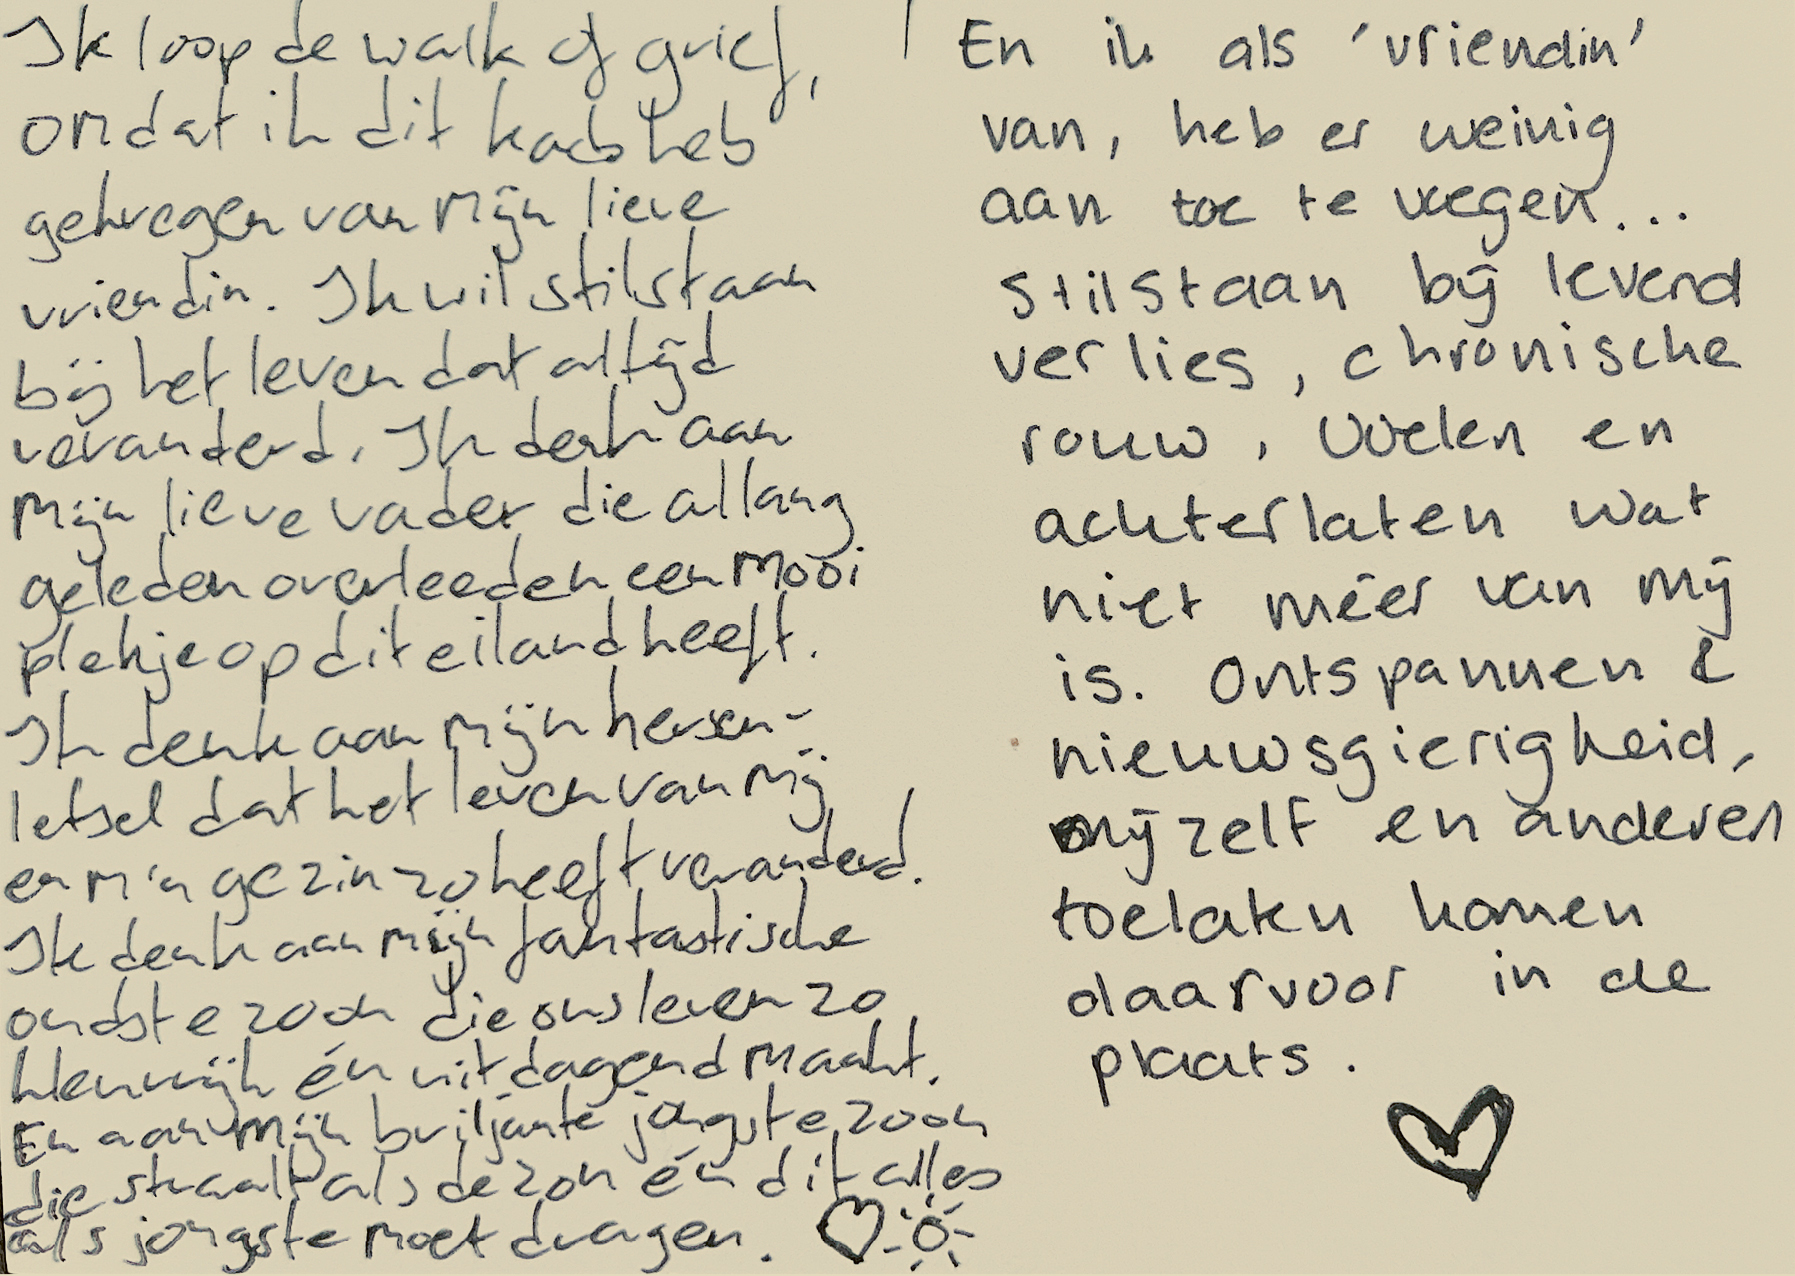 Ik loop de walk of grief,
omdat ik dit kado heb
gekregen van mijn lieve
vriendin. Ik wil stilstaan
bij het leven dat altijd
veranderd. Ik denk aan
mijn lieve vader die al lang
geleden overleeden een mooi
plekje op dit eiland heeft.
Ik denk aan mijn hersen-
letsel dat het leven van mij
en m'n gezin zo heeft veranderd.
Ik denk aan mijn fantastische
oudste zoon die ons leven zo
kleurrijk én uitdagend maakt.
En aan mijn briljante jongste zoon
die straalt als de zon én dit alles
als jongste moet dragen.
En ik als 'vriendin'
van, heb er weinig
aan toe te voegen...
stilstaan bij levend
verlies, chronische
rouw, voelen en
achterlaten wat
niet méér van mij
is. Ontspannen &
nieuwsgierigheid,
mijzelf en anderen
toelaten komen
daarvoor in de
plaats.